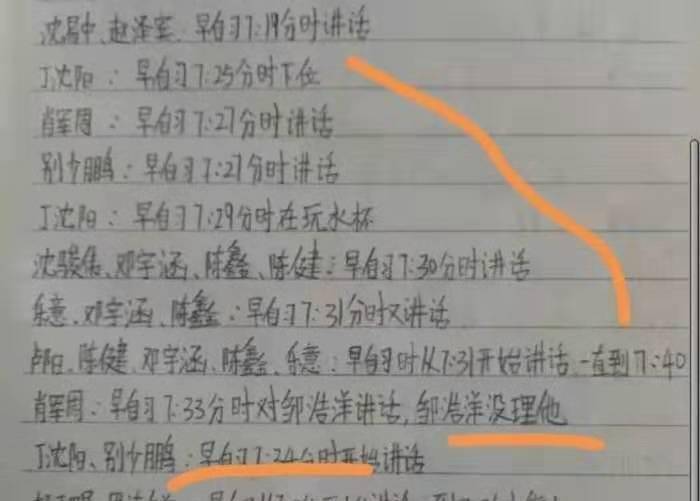 沈易中、赵泽宏:早自习7:19分时讲话
丁沈阳:早自习7:25分时下位
肖军周:早自习7:27分时讲话
别少鹏:早自习7:27分时讲话
丁沈阳:早自习7:29分时在玩水杯
沈骏伟、邓宇涵、陈鑫、陈健:早自习7:30分时讲话
乐意、邓宇涵、陈鑫:早自习7:31分时又讲话
卢阳、陈健、邓宇涵、陈鑫、乐意:早自习时从7:31开始讲话,一直到7:40
肖军周:早自习7:33分时对邹浩洋讲话,邹浩洋没理他
丁沈阳、别少鹏:早自习7:24分时开始讲话